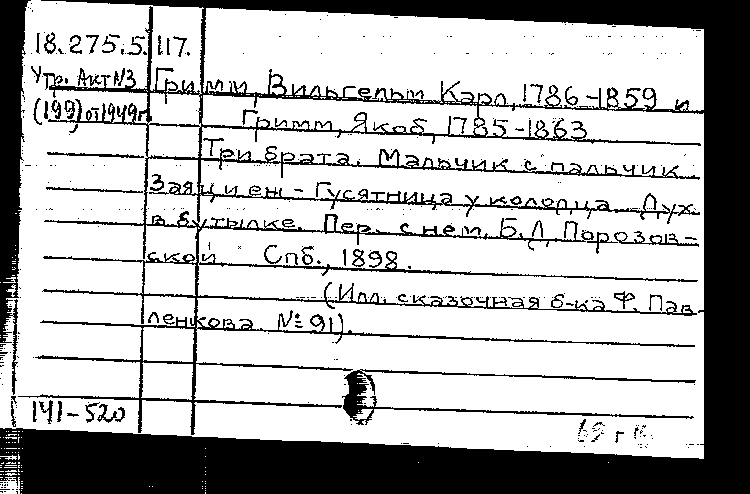 18.275.5.117.
Утр. Акт №3 Гримм, Вильгельм Карл, 1786-1859 и
(199) от 1949г. Гримм, Якоб, 1785-1863.
Три брата. Мальчик с пальчик.
Заяц и еж - Гусятница у колодца. Дух
в бутылке. Пер. с нем. Б.Д. Порозов-
ской. Спб., 1898.
(Илл. сказочная б-ка Ф. Пав-
ленкова. № 91).
141-520